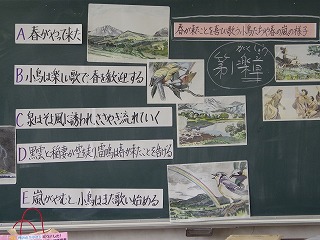 A 春がやって来た
春が来たことを喜び歌う小鳥たちや春の嵐の様子
がくしょう
第1楽章
B 小鳥は楽しい歌で春を歓迎する
C 泉はそよ風に誘われ、ささやき流れていく
D 黒雲と稲妻が空を走り、雷鳴は春が来たことを告げる
E 嵐がやむと、小鳥はまた歌い始める